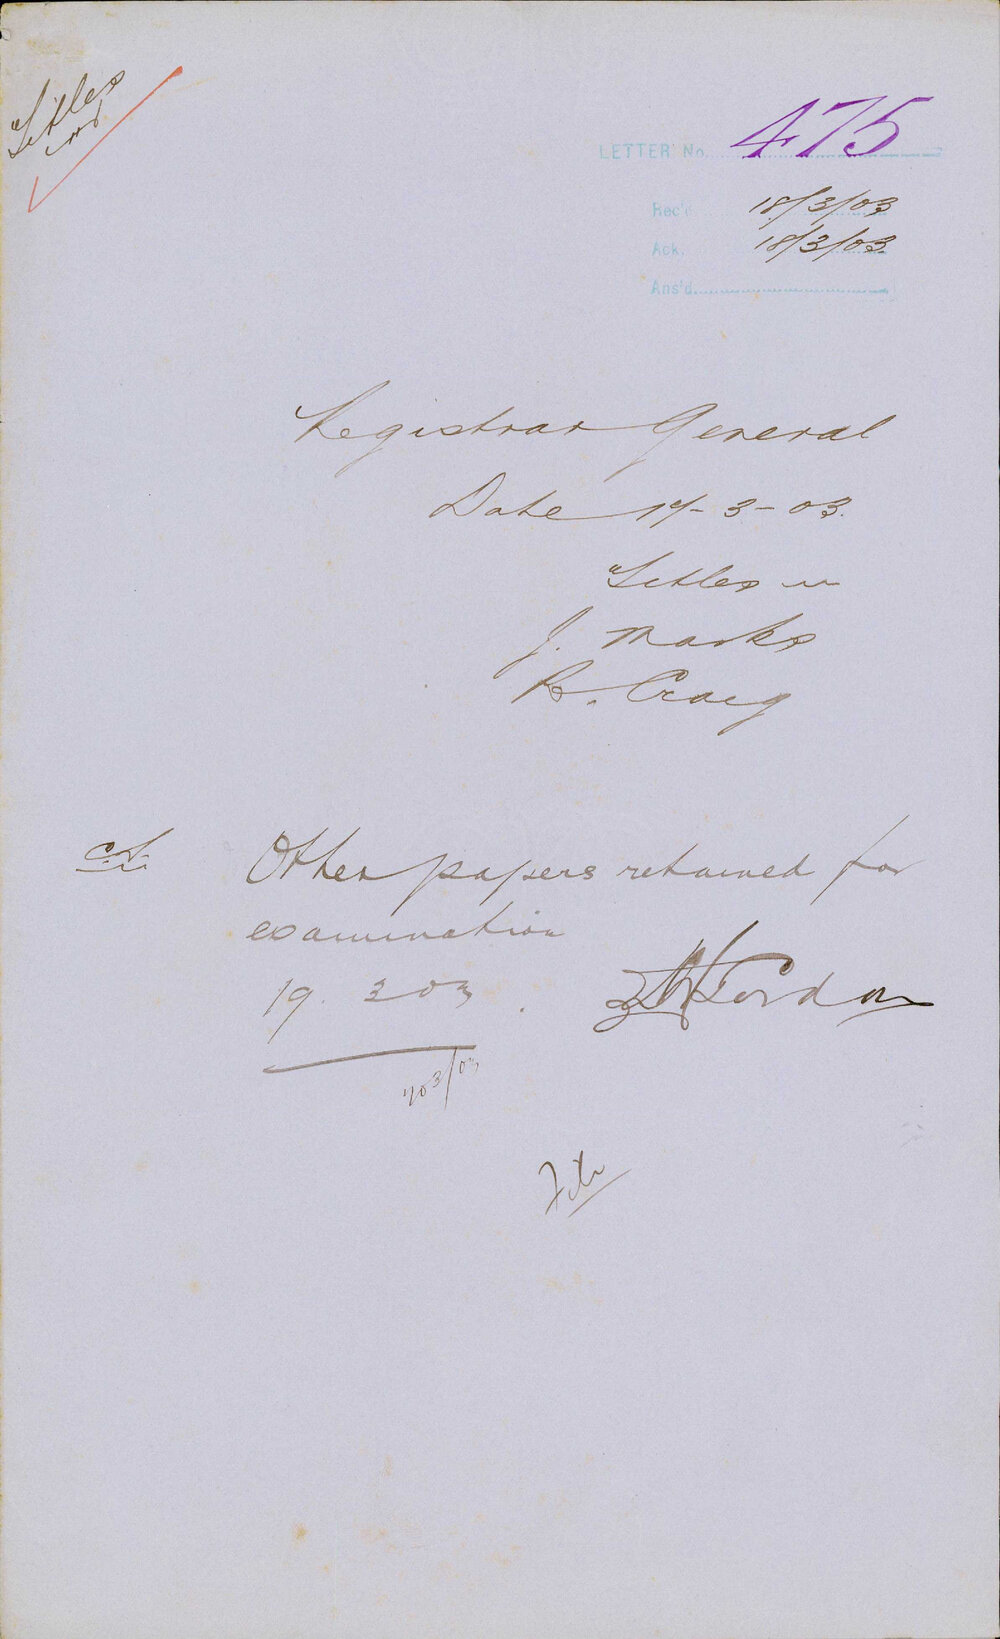 Titles
LETTER No. 475
Rec'd 18/3/03
Ack. 18/3/03
Ans'd
Registrar General
Date 17-3-03.
Titles in
J. Marks
R. Craig
C.S. Other papers retained for
examination
19. 3 03. Gordon
3/03
File